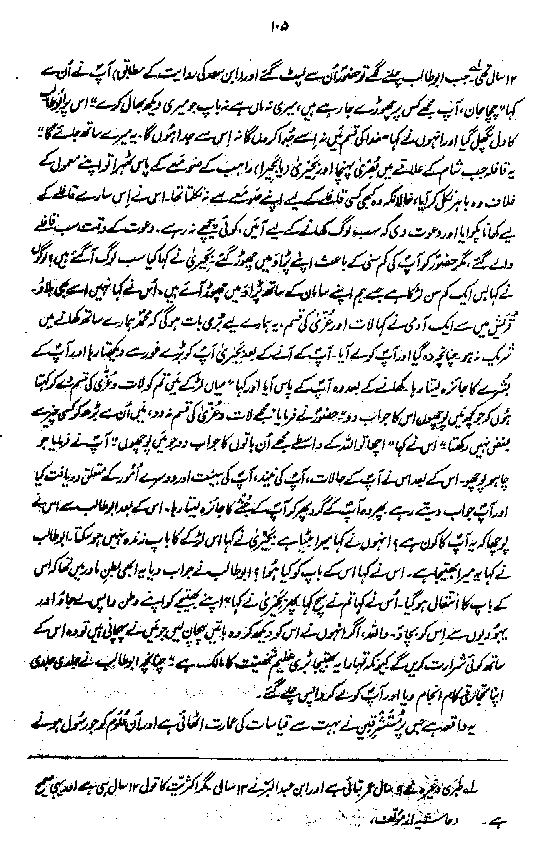 ۱۰۵
۱۲ سال تھی لہ جب ابوطالب چلنے لگے تو حضورؐ اُن سے لپٹ گئے اور (ابن سعد کی روایت کے مطابق) آپؐ نے اُن سے
کہا "چچا جان، آپ مجھے کس پر چھوڑے جا رہے ہیں، میری نہ ماں ہے نہ باپ جو میری دیکھ بھال کرے" اس پر ابوطالب
کا دل پگھل گیا اور انہوں نے کہا "خدا کی قسم میں نہ اسے جُدا کروں گا نہ اس سے جدا ہوں گا۔ یہ میرے ساتھ جائے گا"
یہ قافلہ جب شام کے علاقے میں بُصریٰ پہنچا اور بحیریٰ (یا بحیرا) راہب کے صومعے کے پاس ٹھہرا تو اپنے معمول کے
خلاف وہ باہر نکل کر آیا، حالانکہ وہ کبھی کسی قافلے کے لیے اپنے صومعے سے نہ نکلتا تھا۔ اس نے اس سارے قافلے کے
لیے کھانا پکوایا اور دعوت دی کہ سب لوگ کھانے کے لیے آئیں، کوئی پیچھے نہ رہے۔ دعوت کے وقت سب قافلے
والے گئے، مگر حضورؐ کو آپ کی کم سنی کے باعث اپنے پڑاؤ میں چھوڑ گئے۔ بحیریٰ نے کہا کیا سب لوگ آ گئے ہیں؟ لوگوں
نے کہا بس ایک کم سن لڑکا ہے جسے ہم اپنے سامان کے ساتھ پڑاؤ میں چھوڑ آئے ہیں۔ اُس نے کہا نہیں اسے بھی بلاؤ۔
قریش میں سے ایک آدمی نے کہا لات اور عُزّیٰ کی قسم، یہ ہمارے لیے بُری بات ہوگی کہ محمدؐ ہمارے ساتھ کھانے میں
شریک نہ ہو۔ چنانچہ وہ گیا اور آپؐ کو لے آیا۔ آپؐ کے آنے کے بعد بحیریٰ آپؐ کو بڑے غور سے دیکھتا رہا اور آپؐ کے
بُشرے کا جائزہ لیتا رہا۔ کھانے کے بعد وہ آپؐ کے پاس آیا اور کہا "میاں لڑکے میں تم کو لات و عُزّیٰ کی قسم دے کر کہتا
ہوں کہ جو کچھ میں پوچھوں اس کا جواب دو" حضورؐ نے فرمایا "مجھے لات و عُزّیٰ کی قسم نہ دو، میں اُن سے بڑھ کر کسی چیز سے
بغض نہیں رکھتا" اس نے کہا "اچھا تو اللہ کے واسطے مجھے اُن باتوں کا جواب دو جو میں پوچھوں" آپؐ نے فرمایا جو
چاہو پوچھو۔ اس کے بعد اس نے آپؐ کے حالات، آپؐ کی نیند، آپؐ کی ہیئت اور دوسرے اُمور کے متعلق دریافت کیا
اور آپؐ جواب دیتے رہے پھر وہ آپؐ کے گرد پھر کر آپؐ کے جُثّے کا جائزہ لیتا رہا۔ اس کے بعد ابوطالب سے اس نے
پوچھا کہ یہ آپ کا کون ہے؟ انہوں نے کہا میرا بیٹا ہے بحیریٰ نے کہا اس لڑکے کا باپ زندہ نہیں ہو سکتا، ابوطالب
نے کہا یہ میرا بھتیجا ہے۔ اس نے کہا اس کے باپ کو کیا ہوا؟ ابوطالب نے جواب دیا یہ ابھی بطنِ مادر میں تھا کہ اس
کے باپ کا انتقال ہو گیا۔ اُس نے کہا تم نے سچ کہا۔ پھر بحیریٰ نے کہا "اپنے بھتیجے کو اپنے وطن واپس لے جاؤ اور
یہودیوں سے اس کو بچاؤ۔ واللہ، اگر انہوں نے اس کو دیکھ کر وہ باتیں پہچان لیں جو میں نے پہچانی ہیں تو وہ اس کے
ساتھ کوئی شرارت کریں گے کیونکہ تمہارا یہ بھتیجا بڑی عظیم شخصیت کا مالک ہے" چنانچہ ابوطالب نے جلدی جلدی
اپنا تجارتی کام انجام دیا اور آپؐ کو لے کر واپس چلے گئے۔
یہ واقعہ ہے جس پر مستشرقین نے بہت سے قیاسات کی عمارت اٹھائی ہے اور اُن علوم کو جو رسول ہونے
لہ طبری وغیرہ نے ۹ سال عمر بتائی ہے اور ابن عبدالبر نے ۱۳ سال، مگر اکثریت کا قول ۱۲ سال ہی ہے اور یہی صحیح
ہے۔ (حاشیہ از مؤلف)